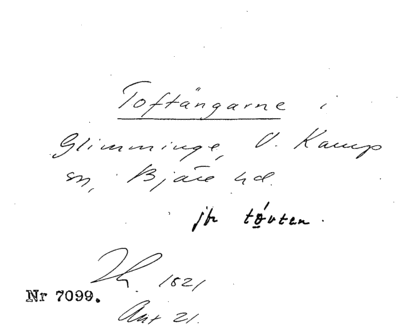 Toftängarne i
Glimminge, V. Karup
sn, Bjäre hd.
jfr tóvten.
1821
Nr 7099.
Akt 21.